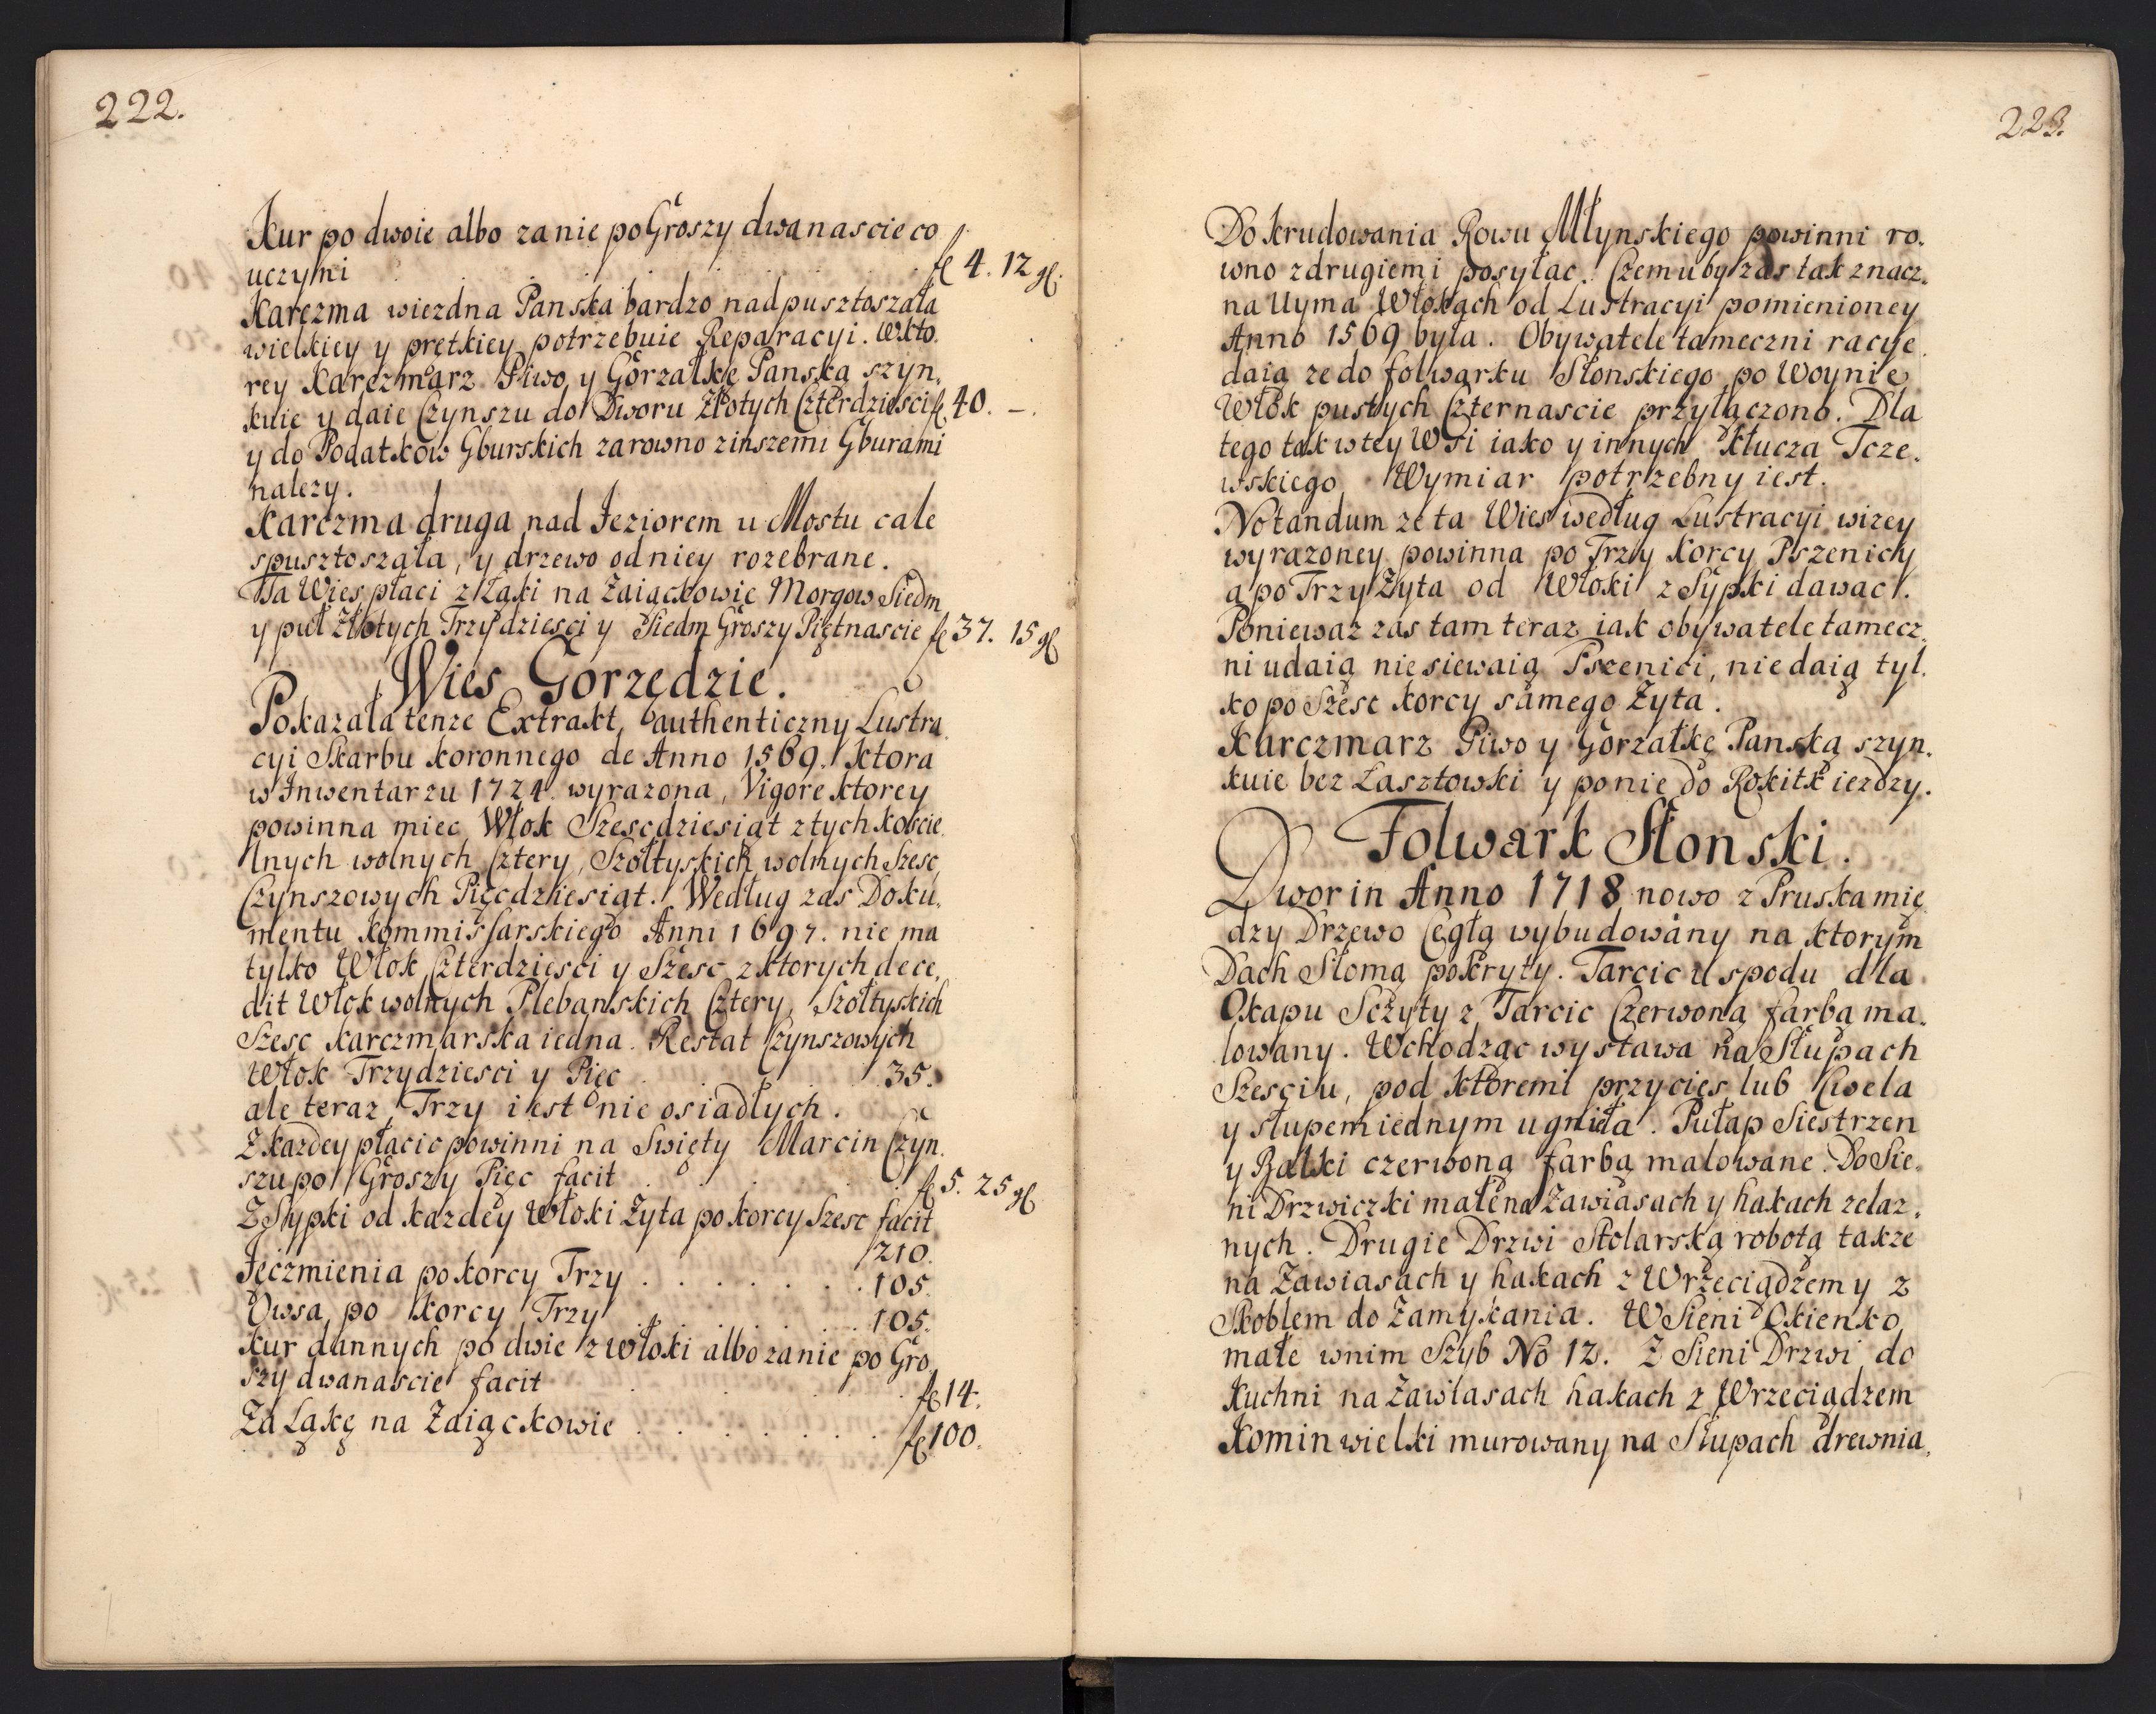 222.
Kur po dwoie albo za nie po Groszy dwanascie co
uczyni . . . . . fl 4. 12 gl.
Karczma wiezdna Panska bardzo nadpusztoszała
wielkiey y prętkiey potrzebuie Reparacyi. Wkto.
rey Karczmarz Piwo y Gorzałkę Panską szyn.
kuie y daie Czynszu do Dworu Złotych Czterdziesci fl 40. -.
y do Podatkow Gburskich zarowno zinszemi Gburami
nalezy.
Karczma druga nad Jeziorem u Mostu cale
spusztoszała, y drzewo od niey rozebrane.
Ta Wies płaci z Łąki na Zaiączkowie Morgow Siedm
y puł Złotych Trzydziesci y Siedm Groszy Piętnascie fl 37. 15 gl
Wies Gorzędzie.
Pokazała tenze Extrakt, authenticzny Lustra.
cyi Skarbu koronnego de Anno 1569. ktora
w Inwentarzu 1724. wyrazona, Vigore ktorey
powinna miec Włok Szescdziesiąt z tych koscie.
lnych wolnych Cztery, Szołtyskich wolnych Szesc,
Czynszowych Pięcdziesiąt. Według zas Doku.
mentu Kommissarskiego Anni 1697. nie ma
tylko Włok Czterdziesci y Szesc z ktorych dece.
dit Włok wolnych Plebanskich Cztery, Szołtyskich
Szesc karczmarska iedna. Restat Czynszowych
Włok Trzydziesci y Pięc . . . 35.
ale teraz Trzy iest nie osiadłych.
Z kazdey płacic powinni na Swięty Marcin Czyn.
szu po Groszy Pięc facit . . . . fl 5. 25 gl
Z Sypki od kazdey Włoki Zyta po korcy Szesc facit
210.
Jęczmienia po korcy Trzy . . . . . . . 105.
Owsa po korcy Trzy . . . . . . 105.
Kur dannych po dwie z włoki albo za nie po Gro
szy dwanascie facit . . . . fl 14.
Za Łąkę na Zaiączkowie . . . . . . . fl 100.
223.
Do krudowania Rowu Młynskiego powinni ro.
wno z drugiemi posyłac. Czemu by zas tak znacz.
na Uyma Włokach od Lustracyi pomienioney
Anno 1569 była. Obywatele tameczni racye
daią ze do folwarku Słonskiego po Woynie
Włok pustych Czternascie przyłączono. Dla
tego tak w tey Wsi iako y innych Klucza Tcze.
wskiego Wymiar potrzebny iest.
Notandum ze ta Wies według Lustracyi wizey
wyrazoney powinna po Trzy korcy Pszenicy
a po Trzy Zyta od Włoki z Sypki dawac.
Poniewaz zas tam teraz iak obywatele tamecz.
ni udaią nie siewaią Pszenici, nie daią tyl.
ko po Szesc korcy samego Zyta.
Karczmarz Piwo y Gorzałkę Panską szyn.
kuie bez Lasztowski y po nie do Rokitk iezdzy.
Folwark Słonski.
Dwor in Anno 1718 nowo z Pruska mię
dzy Drzewo Cegłą wybudowany na ktorym
Dach Słomą pokryty. Tarcic u spodu dla
Okapu Sczyty z Tarcic Czerwoną farbą ma.
lowany. Wchodząc wystawa na Słupach
Szesciu, pod ktoremi przycies lub Cwela
y słupem iednym ugniła. Pułap Siestrzen
y Balki czerwoną farbą malowane. Do Sie.
ni Drzwiczki małe na Zawiasach y hakach zelaz.
nych. Drugie Drzwi Stolarską robotą takze
na Zawiasach y hakach z Wrzeciądzem y z
Skoblem do Zamykania. W Sieni Okienko
małe w nim Szyb No 12. Z Sieni Drzwi do
Kuchni na Zawiasach hakach z Wrzeciądzem
Komin wielki murowany na Słupach drewnia.